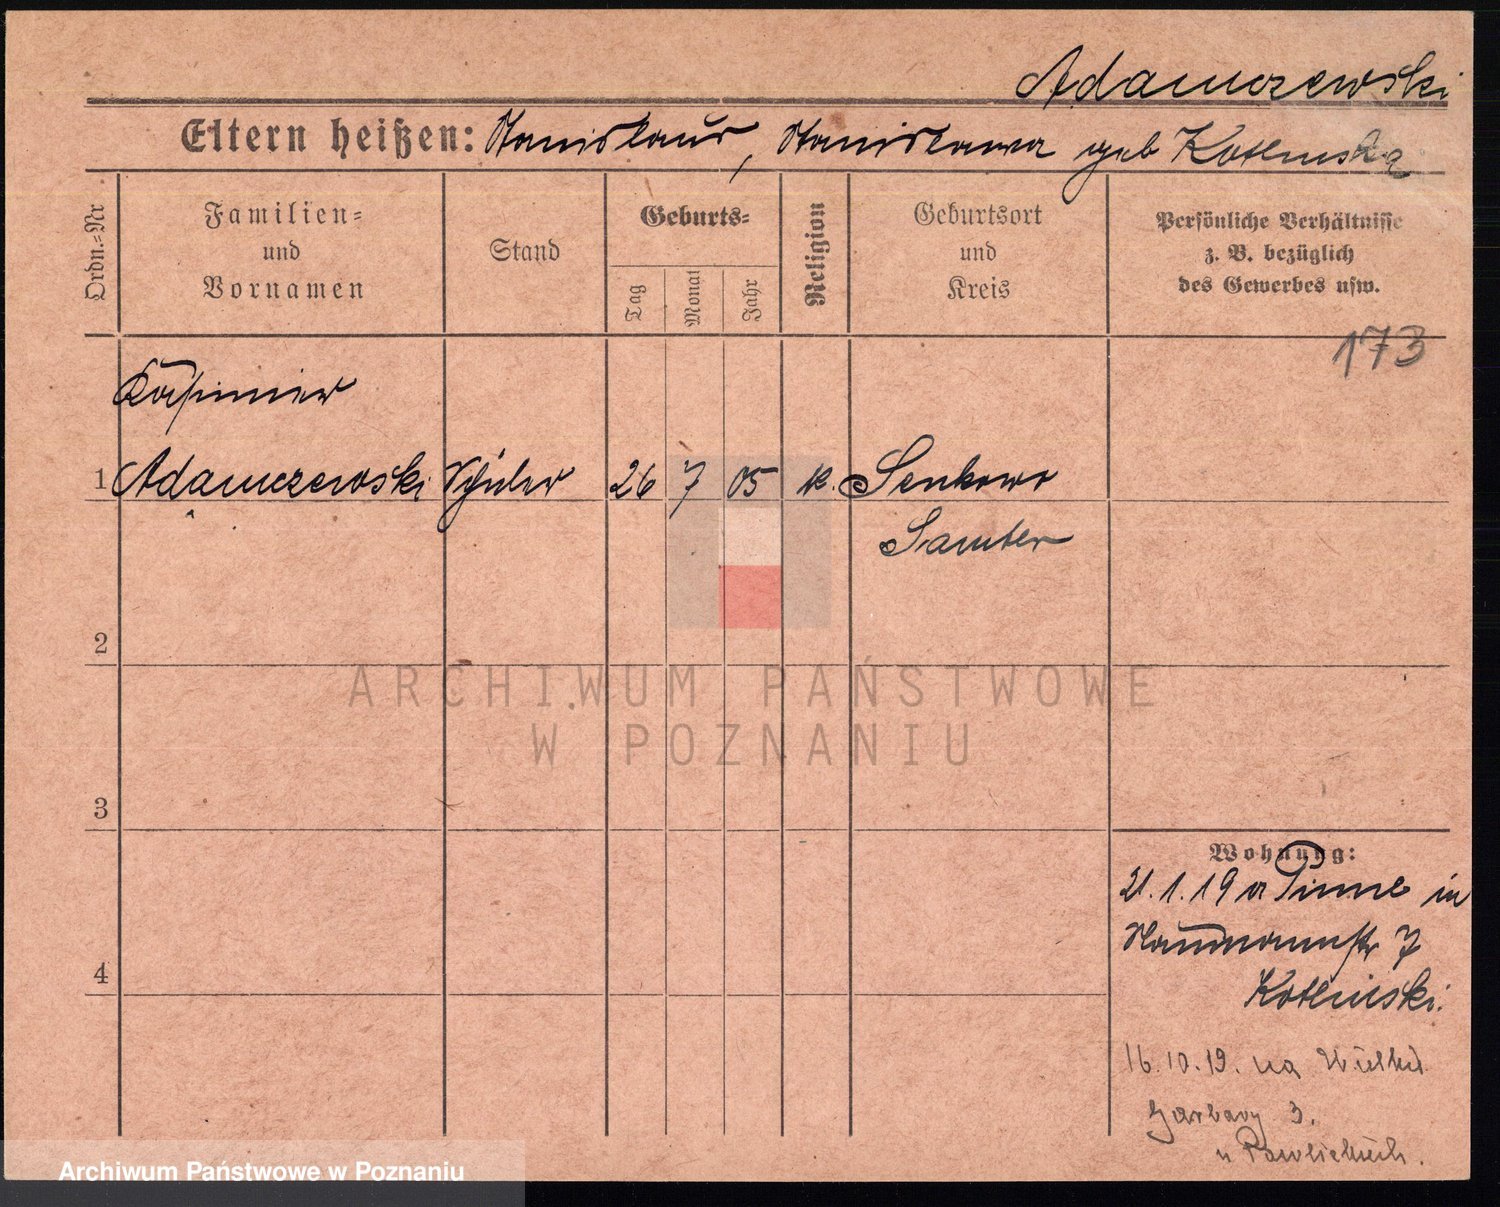 Adamczewski
Eltern heißen: Stanislaus, Stanislawa geb Kotlinska
Ordn.=Nr
Familien=
und
Vornamen
Stand
Geburts=
Tag
Monat
Jahr
Religion
Geburtsort
und
Kreis
Persönliche Verhältnisse
z. B. bezüglich
des Gewerbes usw.
173
Kasimier
1 Adamczewski Schüler 26 7 05 k. Senkowo
Samter
2
3
4
Wohnung:
21.1.19 a Pinne in
Naumannstr 7
Kotlinski.
16.10.19. na Wielkd.
Garbary 3.
u Pawlickich.
ARCHIWUM PAŃSTWOWE
W POZNANIU
Archiwum Państwowe w Poznaniu